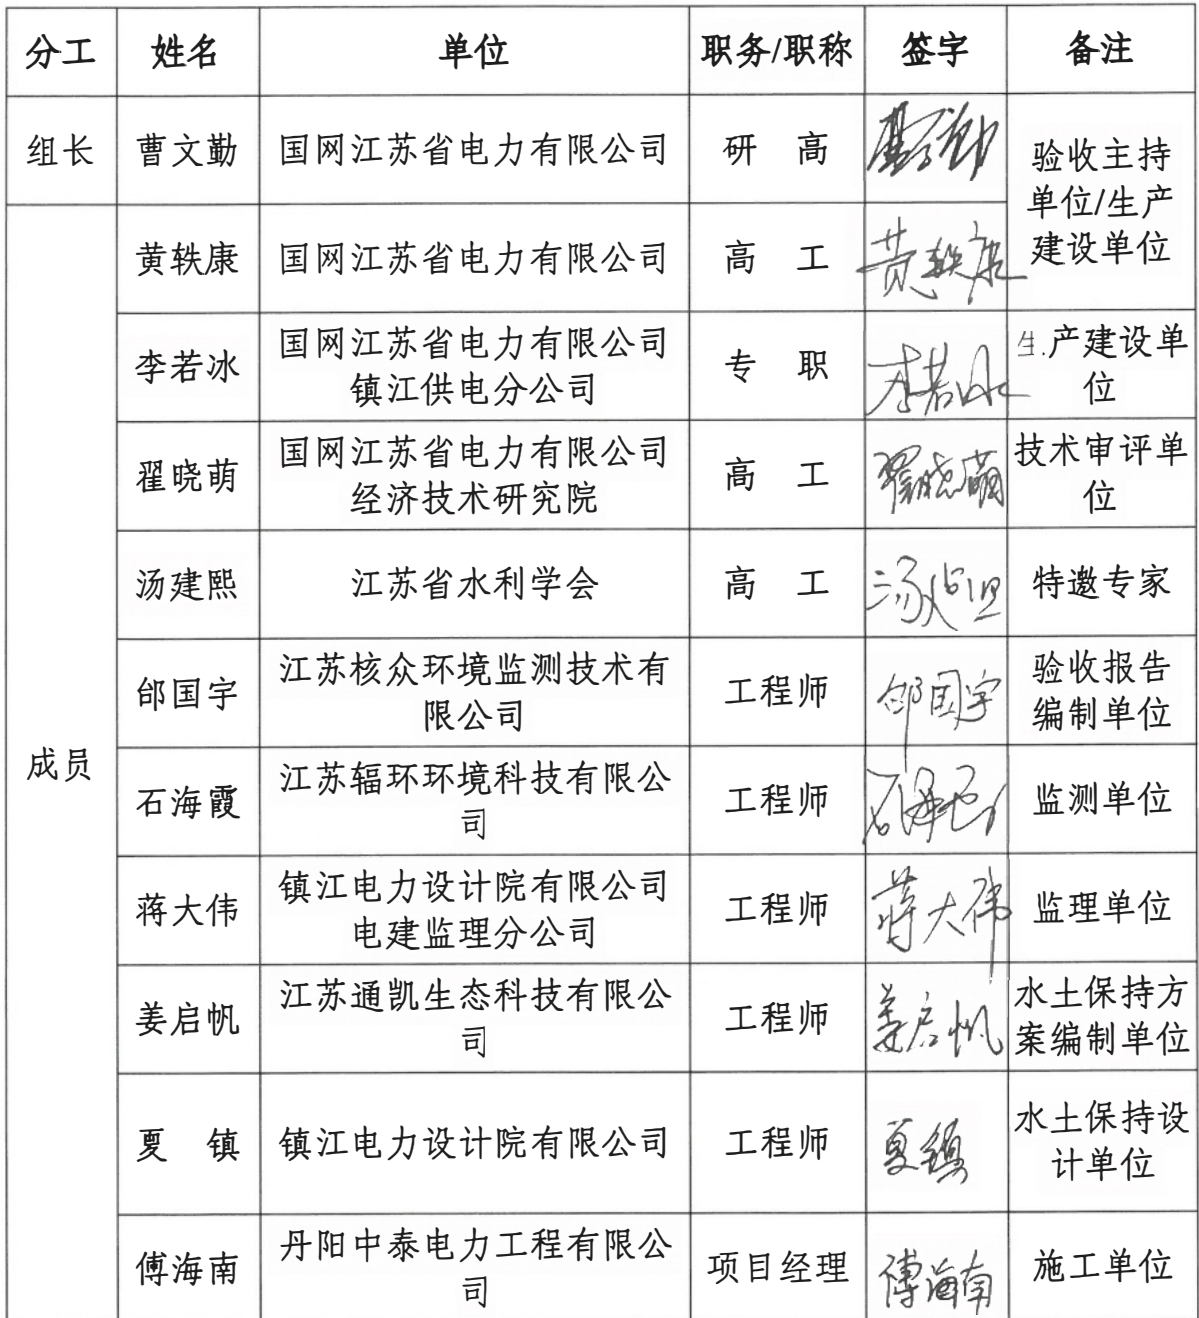 分工 姓名 单位 职务/职称 签字 备注
组长 曹文勤 国网江苏省电力有限公司 研 高
验收主持
单位/生产
建设单位
成员
黄轶康 国网江苏省电力有限公司 高 工 黄轶康
李若冰 国网江苏省电力有限公司
镇江供电分公司
专 职 李若冰
生产建设单
位
翟晓萌 国网江苏省电力有限公司
经济技术研究院
高 工 翟晓萌
技术审评单
位
汤建熙 江苏省水利学会 高 工 特邀专家
邰国宇 江苏核众环境监测技术有
限公司
工程师 邰国宇
验收报告
编制单位
石海霞 江苏辐环环境科技有限公
司
工程师 监测单位
蒋大伟 镇江电力设计院有限公司
电建监理分公司
工程师 蒋大伟 监理单位
姜启帆 江苏通凯生态科技有限公
司
工程师 姜启帆
水土保持方
案编制单位
夏 镇 镇江电力设计院有限公司 工程师 夏镇
水土保持设
计单位
傅海南 丹阳中泰电力工程有限公
司
项目经理 傅海南 施工单位